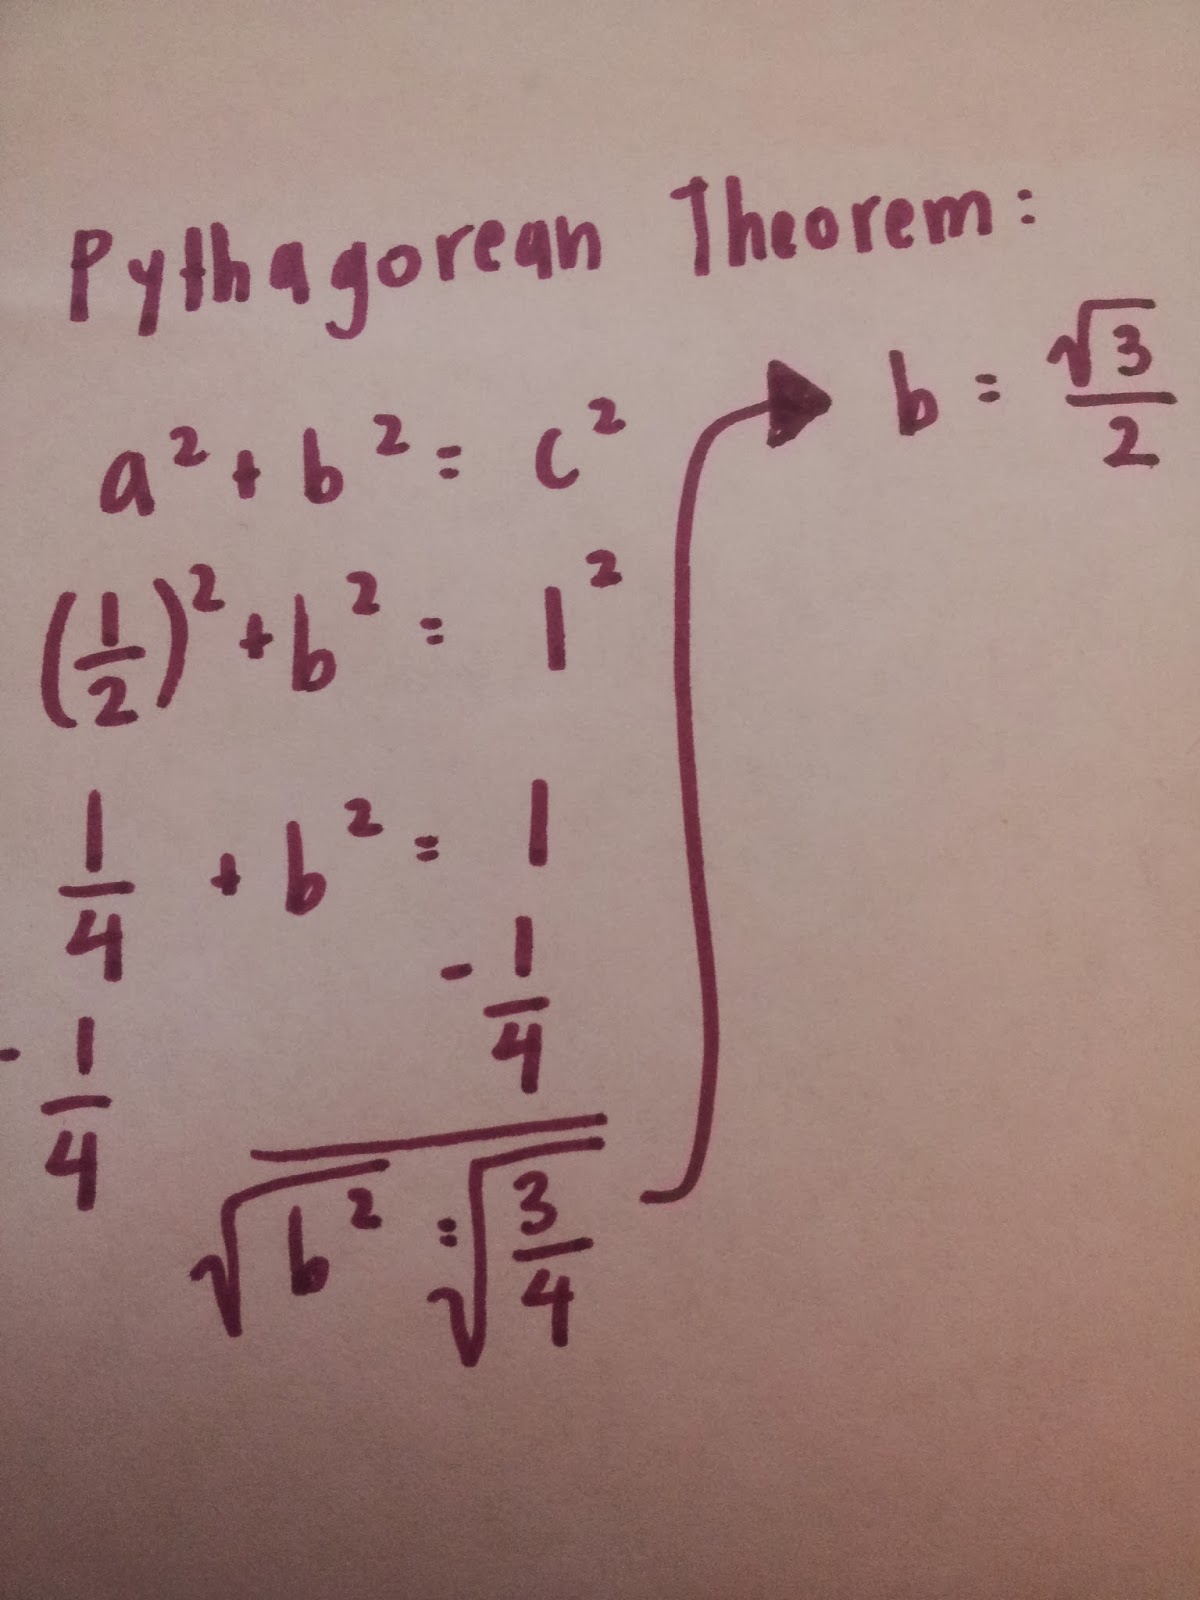 Pythagorean Theorem:
a² + b² = c²
(1/2)² + b² = 1²
1/4 + b² = 1
- 1/4 - 1/4
√b² = √3/4
b = √3/2